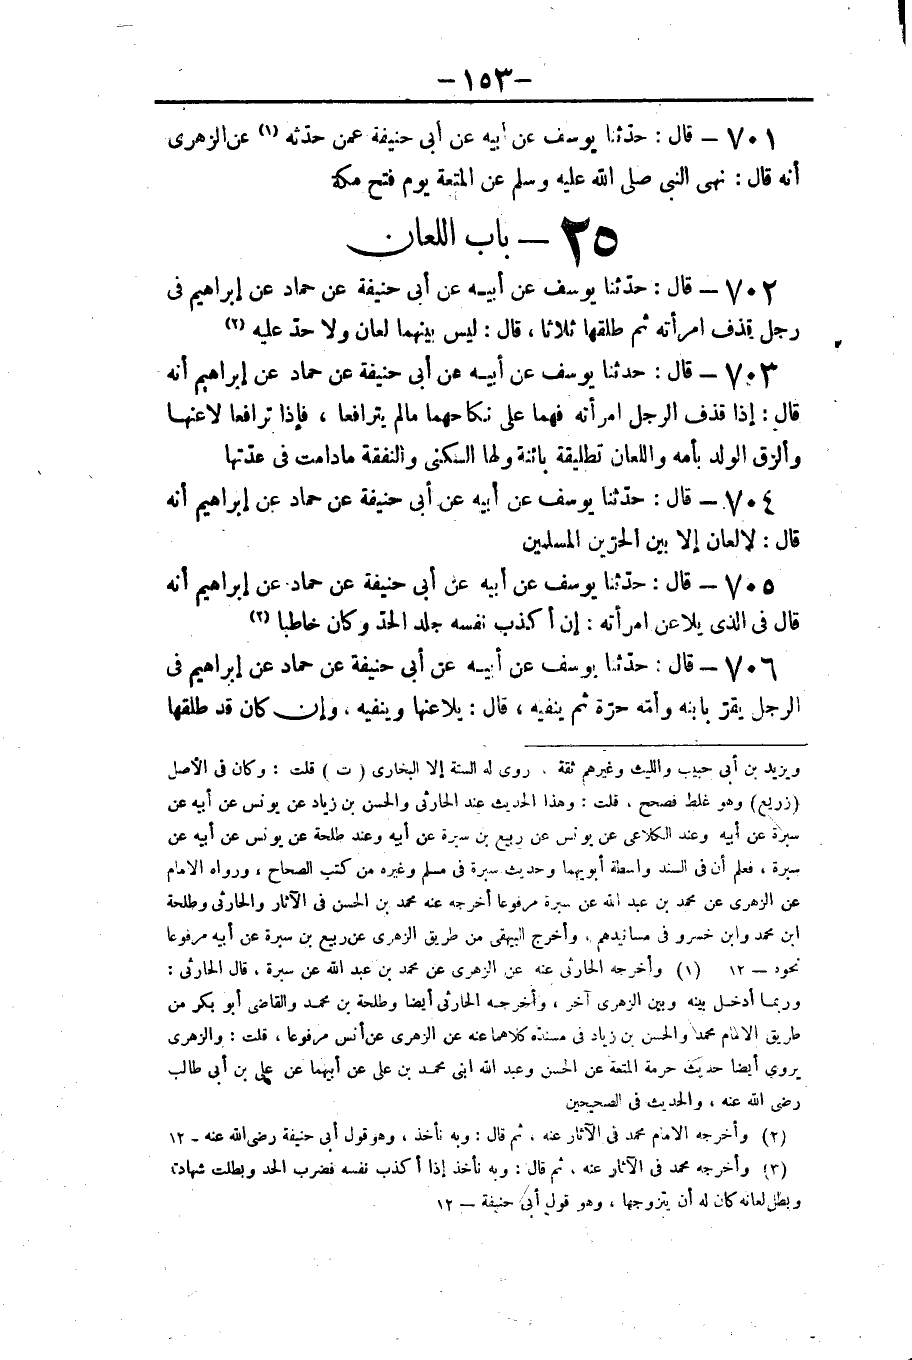 -١٥٣-
٧٠١ - قال : حدّثنا يوسف عن أبيه عن أبى حنيفة عمن حدّثه (١) عن الزهرى
أنه قال : نهى النبى صلى الله عليه وسلم عن المتعة يوم فتح مكة
٢٥ - باب اللعان
٧٠٢ - قال : حدّثنا يوسف عن أبيه عن أبى حنيفة عن حماد عن إبراهيم فى
رجل قذف امرأته ثم طلقها ثلاثا ، قال : ليس بينهما لعان ولا حدّ عليه (٢)
٧٠٣ - قال : حدثنا يوسف عن أبيه عن أبى حنيفة عن حماد عن إبراهيم أنه
قال : إذا قذف الرجل امرأته فهما على نكاحهما مالم يترافعا ، فإذا ترافعا لاعنها
وألزق الولد بأمه واللعان تطليقة بائنة ولها السكنى والنفقة مادامت فى عدّتها
٧٠٤ - قال : حدّثنا يوسف عن أبيه عن أبى حنيفة عن حماد عن إبراهيم أنه
قال : لالعان إلا بين الحرّين المسلمين
٧٠٥ - قال : حدّثنا يوسف عن أبيه عن أبى حنيفة عن حماد عن إبراهيم أنه
قال فى الذى يلاعن امرأته : إن أكذب نفسه جلد الحدّ وكان خاطبا (٣)
٧٠٦ - قال : حدّثنا يوسف عن أبيه عن أبى حنيفة عن حماد عن إبراهيم فى
الرجل يقرّ بابنه وأمّه حرّة ثم ينفيه ، قال : يلاعنها وينفيه ، وإن كان قد طلقها
ويزيد بن أبى حبيب والليث وغيرهم ثقة . روى له الستة إلا البخارى ( ت ) قلت : وكان فى الأصل
(زريع) وهو غلط فصحح ، قلت : وهذا الحديث عند الحارثى والحسن بن زياد عن يونس عن أبيه عن
سبرة عن أبيه وعند الكلاعى عن يونس عن ربيع بن سبرة عن أبيه وعند طلحة عن يونس عن أبيه عن
سبرة ، فعلم أن فى السند واسطة أبويهما وحديث سبرة فى مسلم وغيره من كتب الصحاح ، ورواه الامام
عن الزهرى عن محمد بن عبد الله عن سبرة مرفوعا أخرجه عنه محمد بن الحسن فى الآثار والحارثى وطلحة
ابن محمد وابن خسرو فى مسانيدهم . وأخرج البيهقى من طريق الزهرى عن ربيع بن سبرة عن أبيه مرفوعا
نحوه - ١٢ (١) وأخرجه الحارثى عنه عن الزهرى عن محمد بن عبد الله عن سبرة ، قال الحارثى :
وربما أدخل بينه وبين الزهرى آخر ، وأخرجه الحارثى أيضا وطلحة بن محمد والقاضى أبو بكر من
طريق الامام محمد والحسن بن زياد فى مسنده كلاهما عنه عن الزهرى عن أنس مرفوعا ، قلت : والزهرى
يروى أيضا حديث حرمة المتعة عن الحسن وعبد الله ابنى محمد بن على عن أبيهما عن على بن أبى طالب
رضى الله عنه ، والحديث فى الصحيحين
(٢) وأخرجه الامام محمد فى الآثار عنه ، ثم قال : وبه نأخذ ، وهو قول أبى حنيفة رضى الله عنه - ١٢
(٣) وأخرجه محمد فى الآثار عنه ، ثم قال : وبه نأخذ إذا أكذب نفسه فضرب الحد وبطلت شهادته
وبطل لعانه كان له أن يتزوجها ، وهو قول أبى حنيفة - ١٢